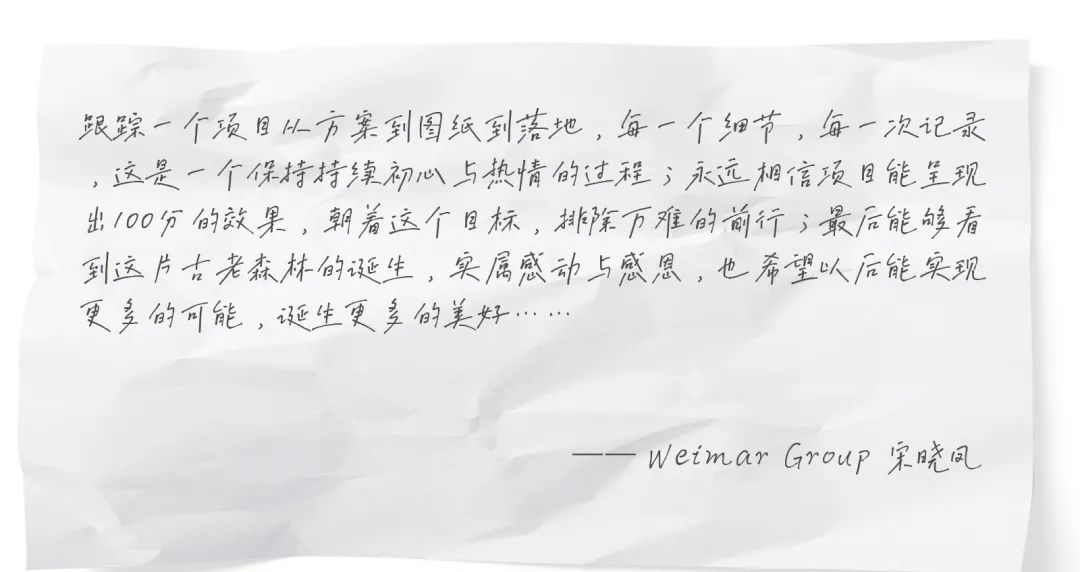 跟踪一个项目从方案到图纸到落地，每一个细节，每一次记录
，这是一个保持持续初心与热情的过程；永远相信项目能呈现
出100分的效果，朝着这个目标，排除万难的前行；最后能够看
到这片古老森林的诞生，实属感动与感恩，也希望以后能实现
更多的可能，诞生更多的美好……
—— Weimar Group 宋晓凤